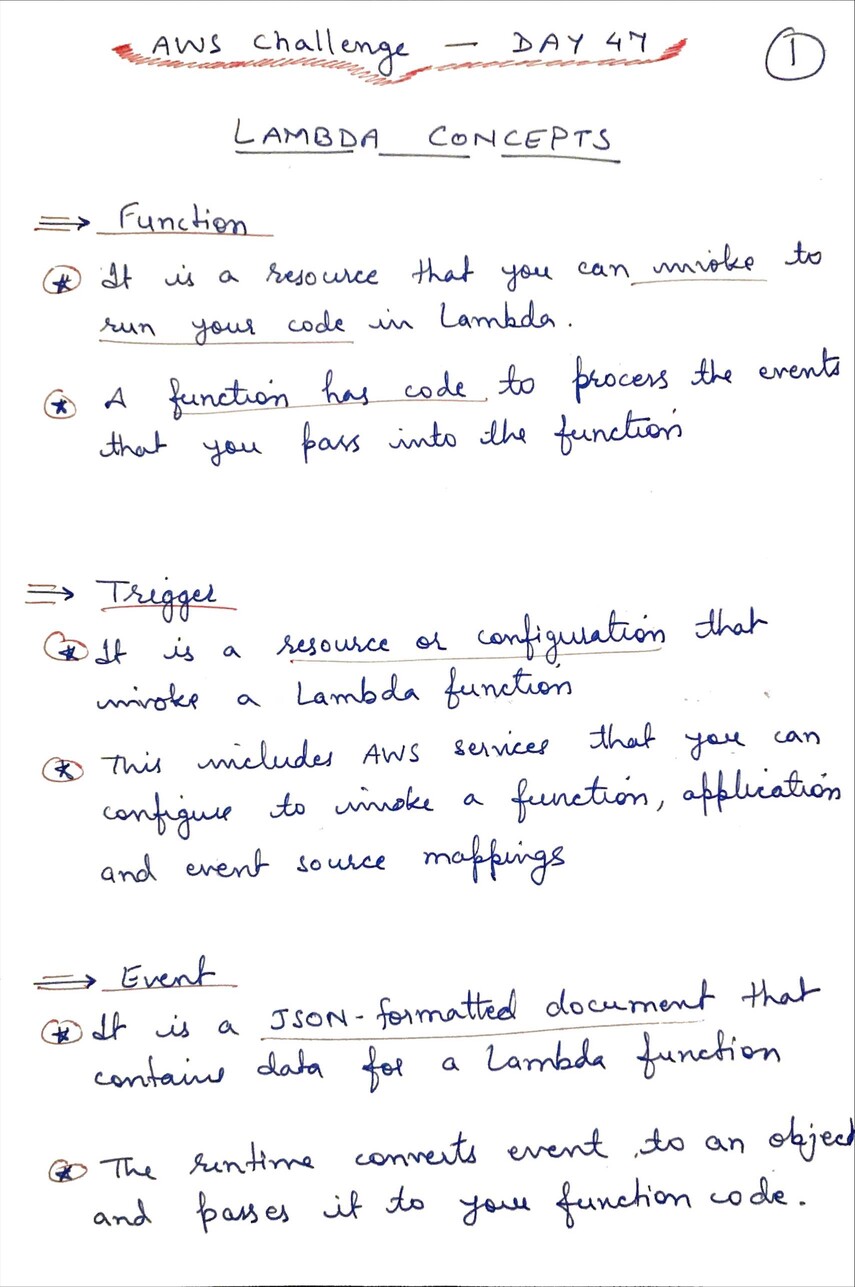 AWS Challenge — DAY 47
1
LAMBDA CONCEPTS
⇒ Function
* It is a resource that you can invoke to
run your code in Lambda.
* A function has code to process the events
that you pass into the function
⇒ Trigger
* It is a resource or configuration that
invoke a Lambda function
* This includes AWS services that you can
configure to invoke a function, application
and event source mappings
⇒ Event
* It is a JSON-formatted document that
contains data for a Lambda function
* The runtime converts event to an object
and passes it to your function code.